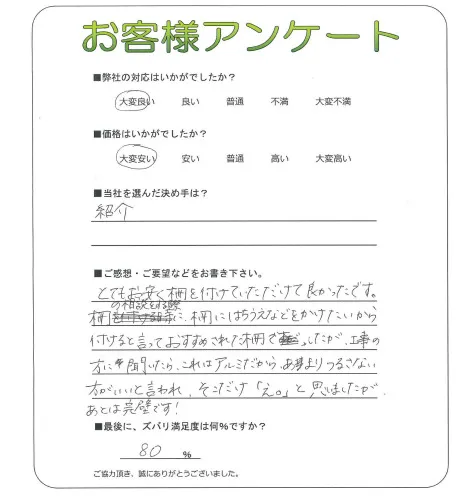 お客様アンケート
■弊社の対応はいかがでしたか?
大変良い 良い 普通 不満 大変不満
■価格はいかがでしたか?
大変安い 安い 普通 高い 大変高い
■当社を選んだ決め手は?
紹介
■ご感想・ご要望などをお書き下さい。
とてもお安く柵を付けていただけて良かったです。
の相談をする際
柵に、柵にはちうえなどをかけたいから
付けると言っておすすめされた柵でしたが、工事の
方に聞いたら、これはアルミだから、あまりつるさない
方がいいと言われ、そこだけ「え。」と思いましたが、
あとは完璧です!
■最後に、ズバリ満足度は何%ですか?
80 %
ご協力頂き、誠にありがとうございました。